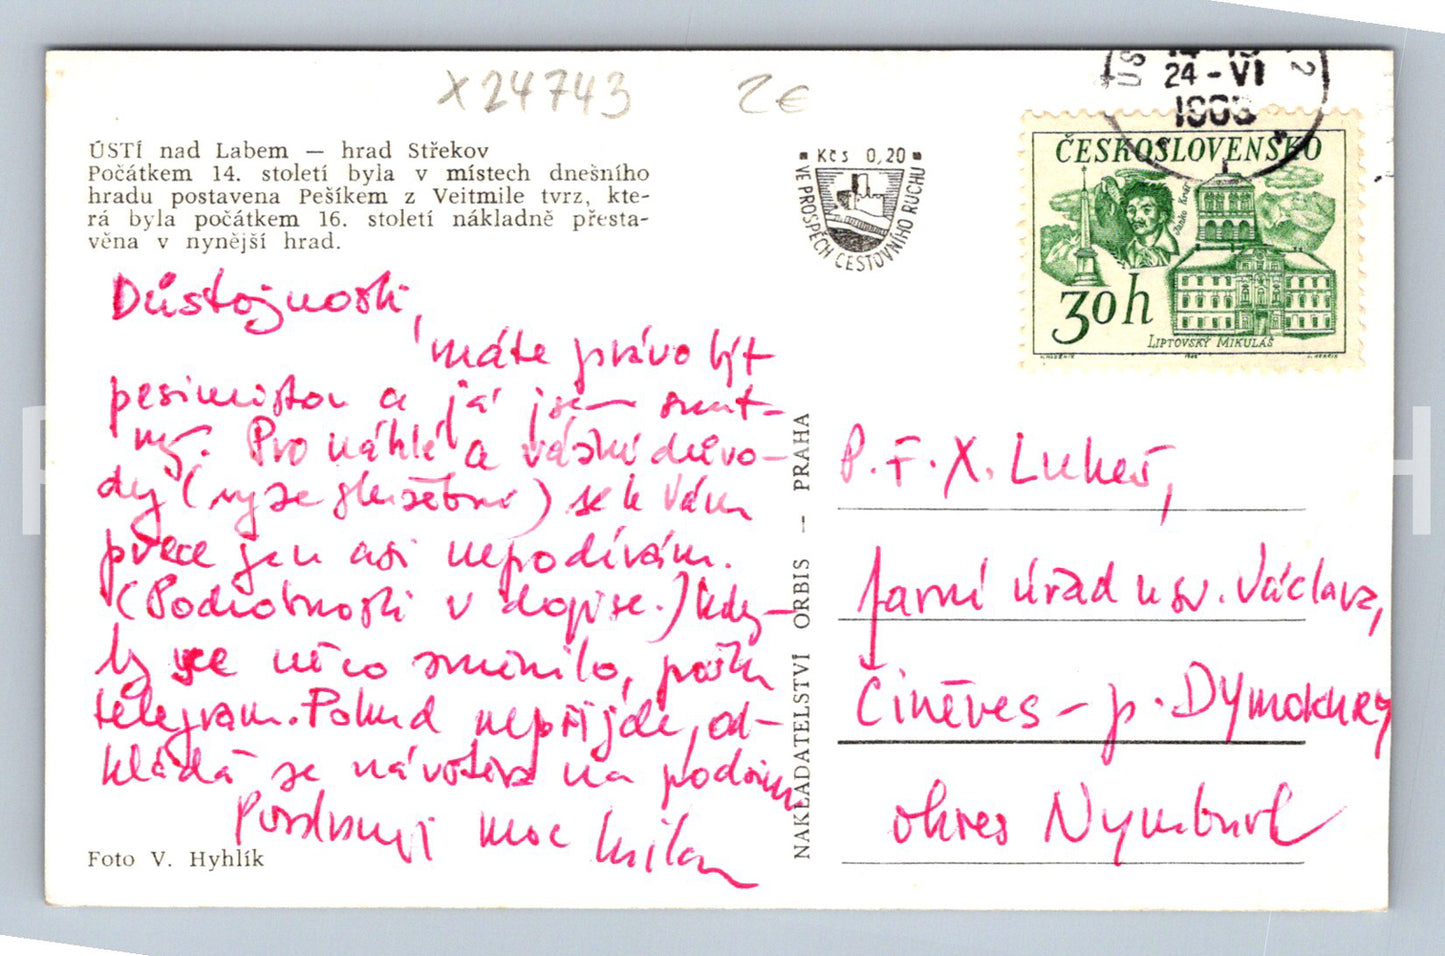 X24743 2€
ÚSTÍ nad Labem — hrad Střekov
Počátkem 14. století byla v místech dnešního
hradu postavena Pešíkem z Veitmile tvrz, kte-
rá byla počátkem 16. století nákladně přesta-
věna v nynější hrad.
Kčs 0,20
VE PROSPĚCH CESTOVNÍHO RUCHU
24-VI
ČESKOSLOVENSKO
Janko Kráľ
30h
LIPTOVSKÝ MIKULÁŠ
Důstojnosti,
máte právo být
pesimistou a já jsem smut-
ný. Pro náhlé a vážné důvo-
dy (ryze služební) se k Vám
přece jen asi nepodívám.
(Podrobnosti v dopise.) Kdy-
by se něco změnilo, pošlu
telegram. Pokud nepřijde, od-
kládá se návštěva na podzim
Pozdravuji moc Milan
Foto V. Hyhlík
NAKLADATELSTVÍ ORBIS — PRAHA
P. F. X. Lukeš,
farní úřad u sv. Václava,
Činěves – p. Dymokury
okres Nymburk